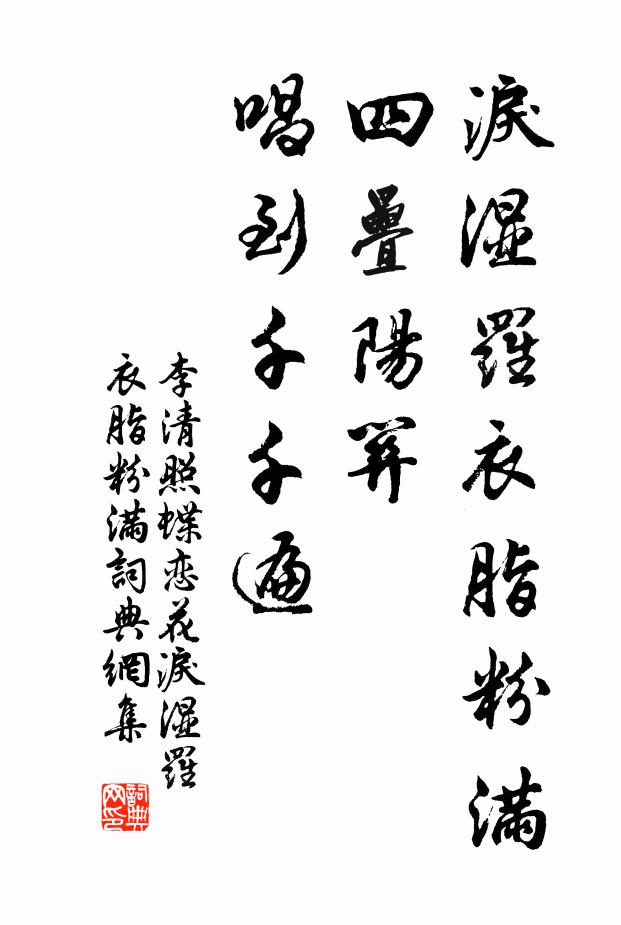 淚濕羅衣脂粉滿
四疊陽關
唱到千千遍
李清照蝶恋花淚濕羅
衣脂粉滿詞典網集
詞典网印